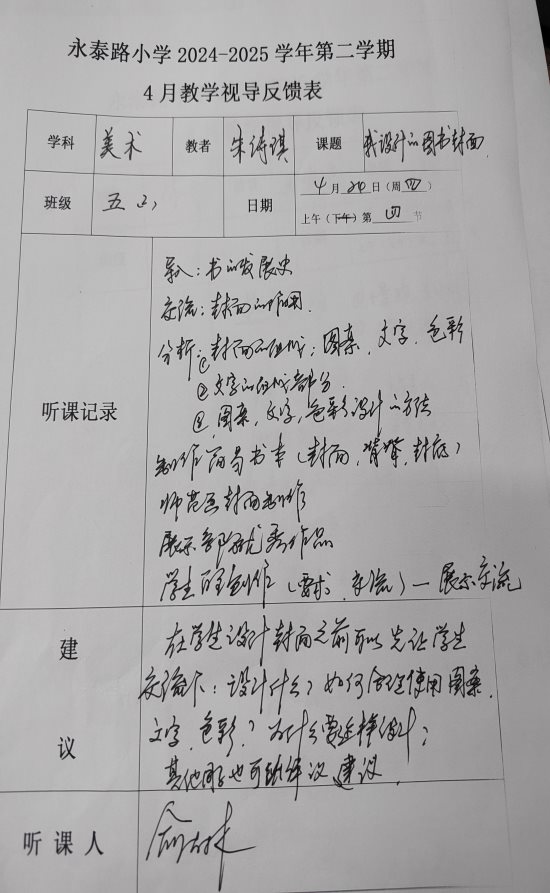 永泰路小学 2024-2025 学年第二学期
4 月教学视导反馈表
学科 美术 教者 朱倩琪 课题 我设计的图书封面
班级 五(2) 日期 4 月 20 日（周 四 ）
上午（下午）第 四 节
听课记录
导入：书的发展史
交流：封面的作用
分析：①封面的组成：图案、文字、色彩
②文字的组成部分
③图案、文字、色彩设计的方法
制作简易书本（封面，书脊，封底）
师范画封面制作
展示部分优秀作品
学生创作（要求、交流）— 展示交流
建议
在学生设计封面之前可以先让学生
交流下：设计什么？如何合理使用图案、
文字、色彩？为什么要这样设计；
其他同学也可以评议、建议。
听课人